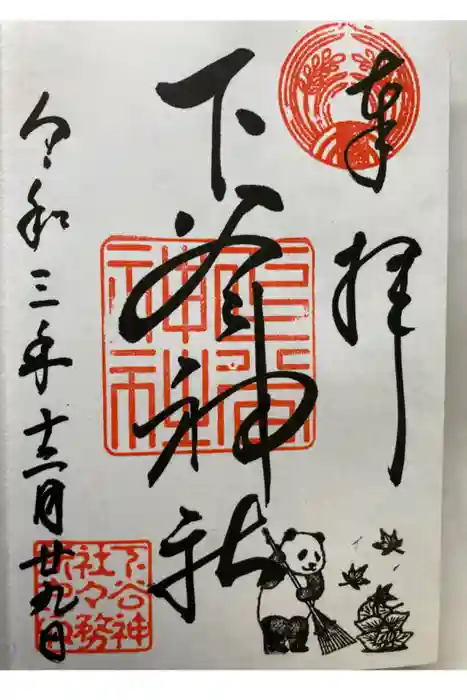 奉拝
下谷神社
下谷
神社
令和三年十二月廿九日
下谷神
社々務